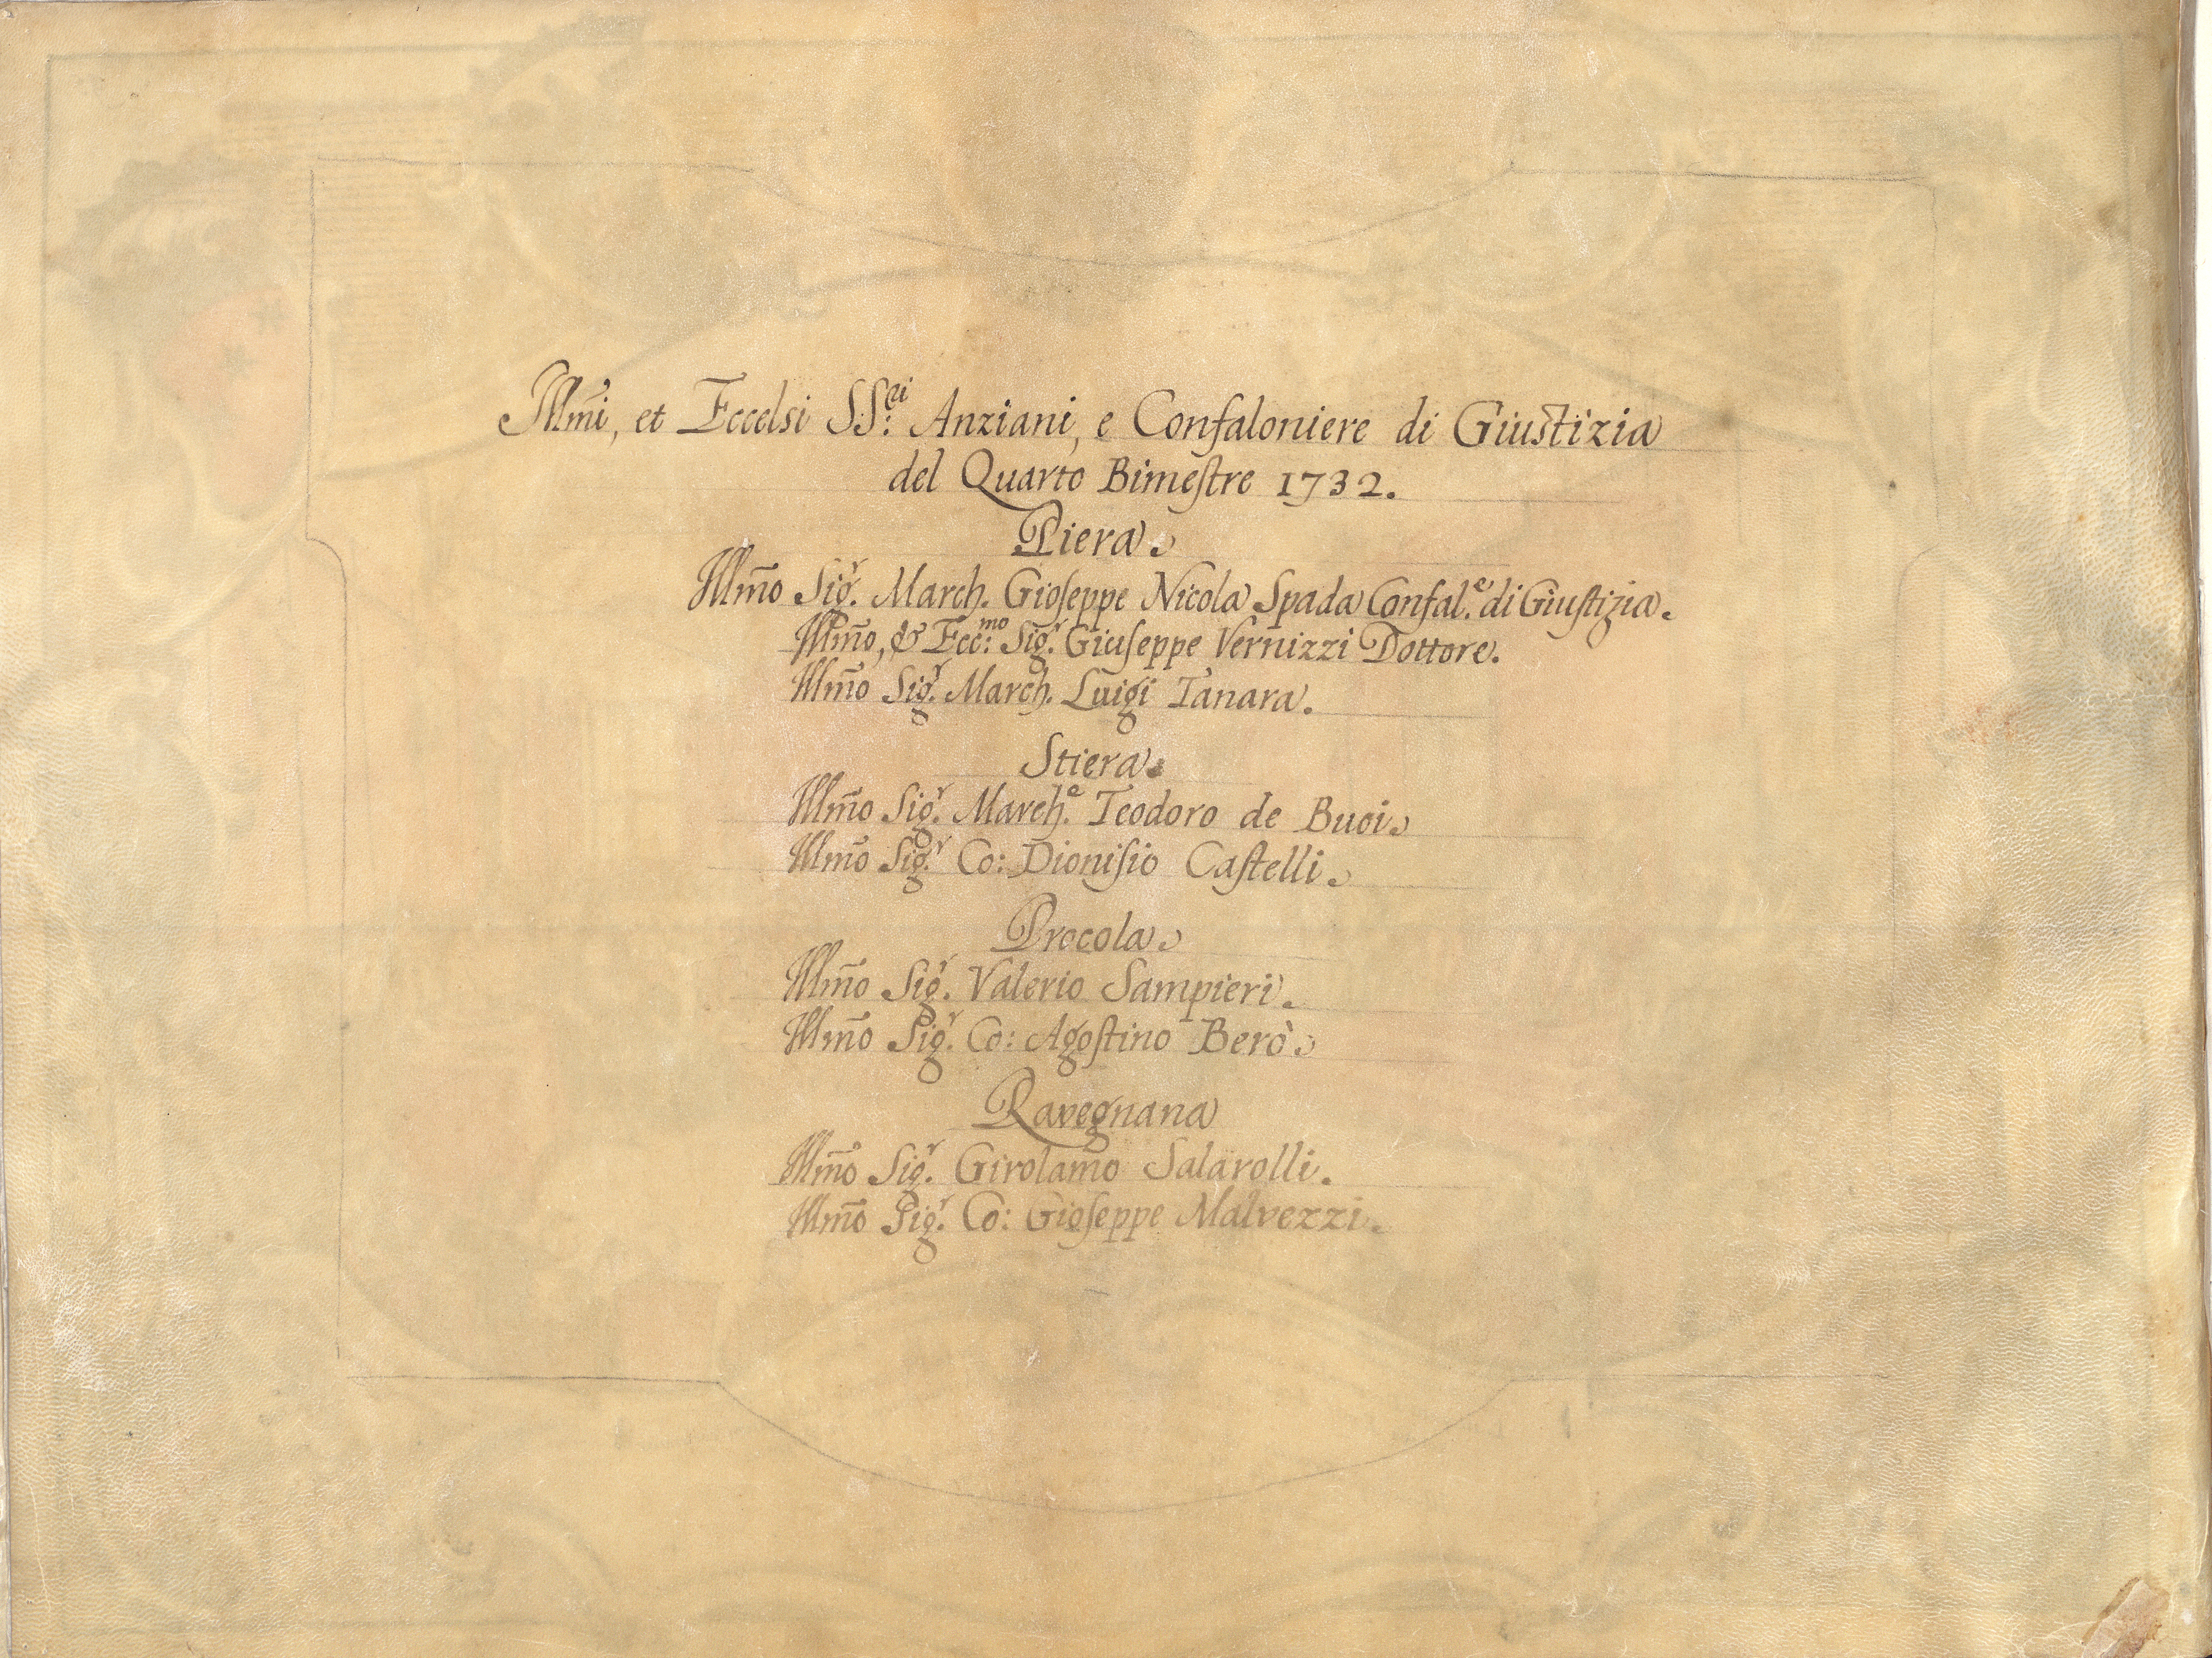 Illm̃i, et Eccelsi SS:ri Anziani, e Confaloniere di Giustizia
del Quarto Bimestre 1732.
Piera.
Illm̃o Sig.r March. Gioseppe Nicola Spada Confal.e di Giustizia.
Illm̃o, & Ecc:mo Sig.r Giuseppe Vernizzi Dottore.
Illm̃o Sig.r March. Luigi Tanara.
Stiera.
Illm̃o Sig.r March.e Teodoro de Buoi.
Illm̃o Sig.r Co: Dionisio Castelli.
Procola.
Illm̃o Sig.r Valerio Sampieri.
Illm̃o Sig.r Co: Agostino Berò.
Ravegnana
Illm̃o Sig.r Girolamo Salarolli.
Illm̃o Sig.r Co: Gioseppe Malvezzi.